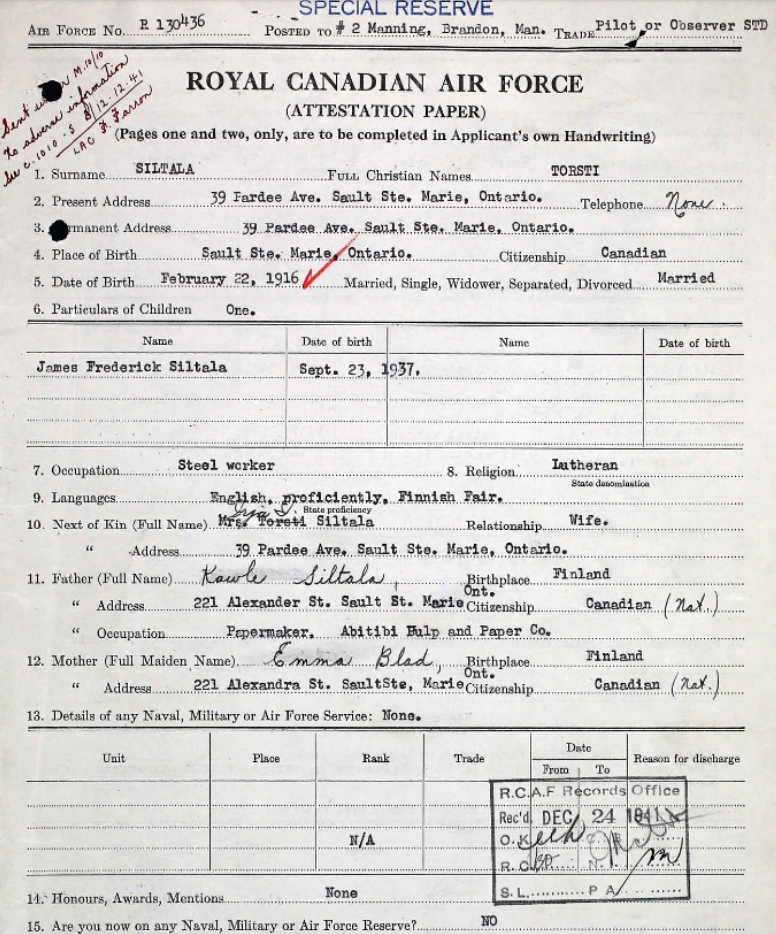 SPECIAL RESERVE
AIR FORCE No. R 130436 POSTED TO # 2 Manning, Brandon, Man. TRADE Pilot or Observer STD
Sent under M.10/10
to adverse information
See C.10.10.S 8/12.12.41
LAC F. Farron
ROYAL CANADIAN AIR FORCE
(ATTESTATION PAPER)
(Pages one and two, only, are to be completed in Applicant's own Handwriting)
1. Surname SILTALA FULL Christian Names TORSTI
2. Present Address 39 Pardee Ave. Sault Ste. Marie, Ontario. Telephone None.
3. rmanent Address 39 Pardee Ave. Sault Ste. Marie, Ontario.
4. Place of Birth Sault Ste. Marie, Ontario. Citizenship Canadian
5. Date of Birth February 22, 1916 Married, Single, Widower, Separated, Divorced Married
6. Particulars of Children One.
Name Date of birth Name Date of birth
James Frederick Siltala Sept. 23, 1937.
7. Occupation Steel worker 8. Religion Lutheran
State denomination
9. Languages English, proficiently, Finnish Fair.
State proficiency
10. Next of Kin (Full Name) Mrs. Torsti Siltala Relationship Wife.
" Address 39 Pardee Ave. Sault Ste. Marie, Ontario.
11. Father (Full Name) Kawle Siltala, Birthplace Finland
" Address 221 Alexander St. Sault St. Marie Ont. Citizenship Canadian (Nat.)
" Occupation Papermaker, Abitibi Pulp and Paper Co.
12. Mother (Full Maiden Name) Emma Blad, Birthplace Finland
" Address 221 Alexandra St. SaultSte, Marie Ont. Citizenship Canadian (Nat.)
13. Details of any Naval, Military or Air Force Service: None.
Unit Place Rank Trade Date Reason for discharge
From To
R.C.A.F Records Office
Rec'd DEC 24 1941
N/A O.K.
R.C.
S.L. P A
14. Honours, Awards, Mentions None
15. Are you now on any Naval, Military or Air Force Reserve? NO